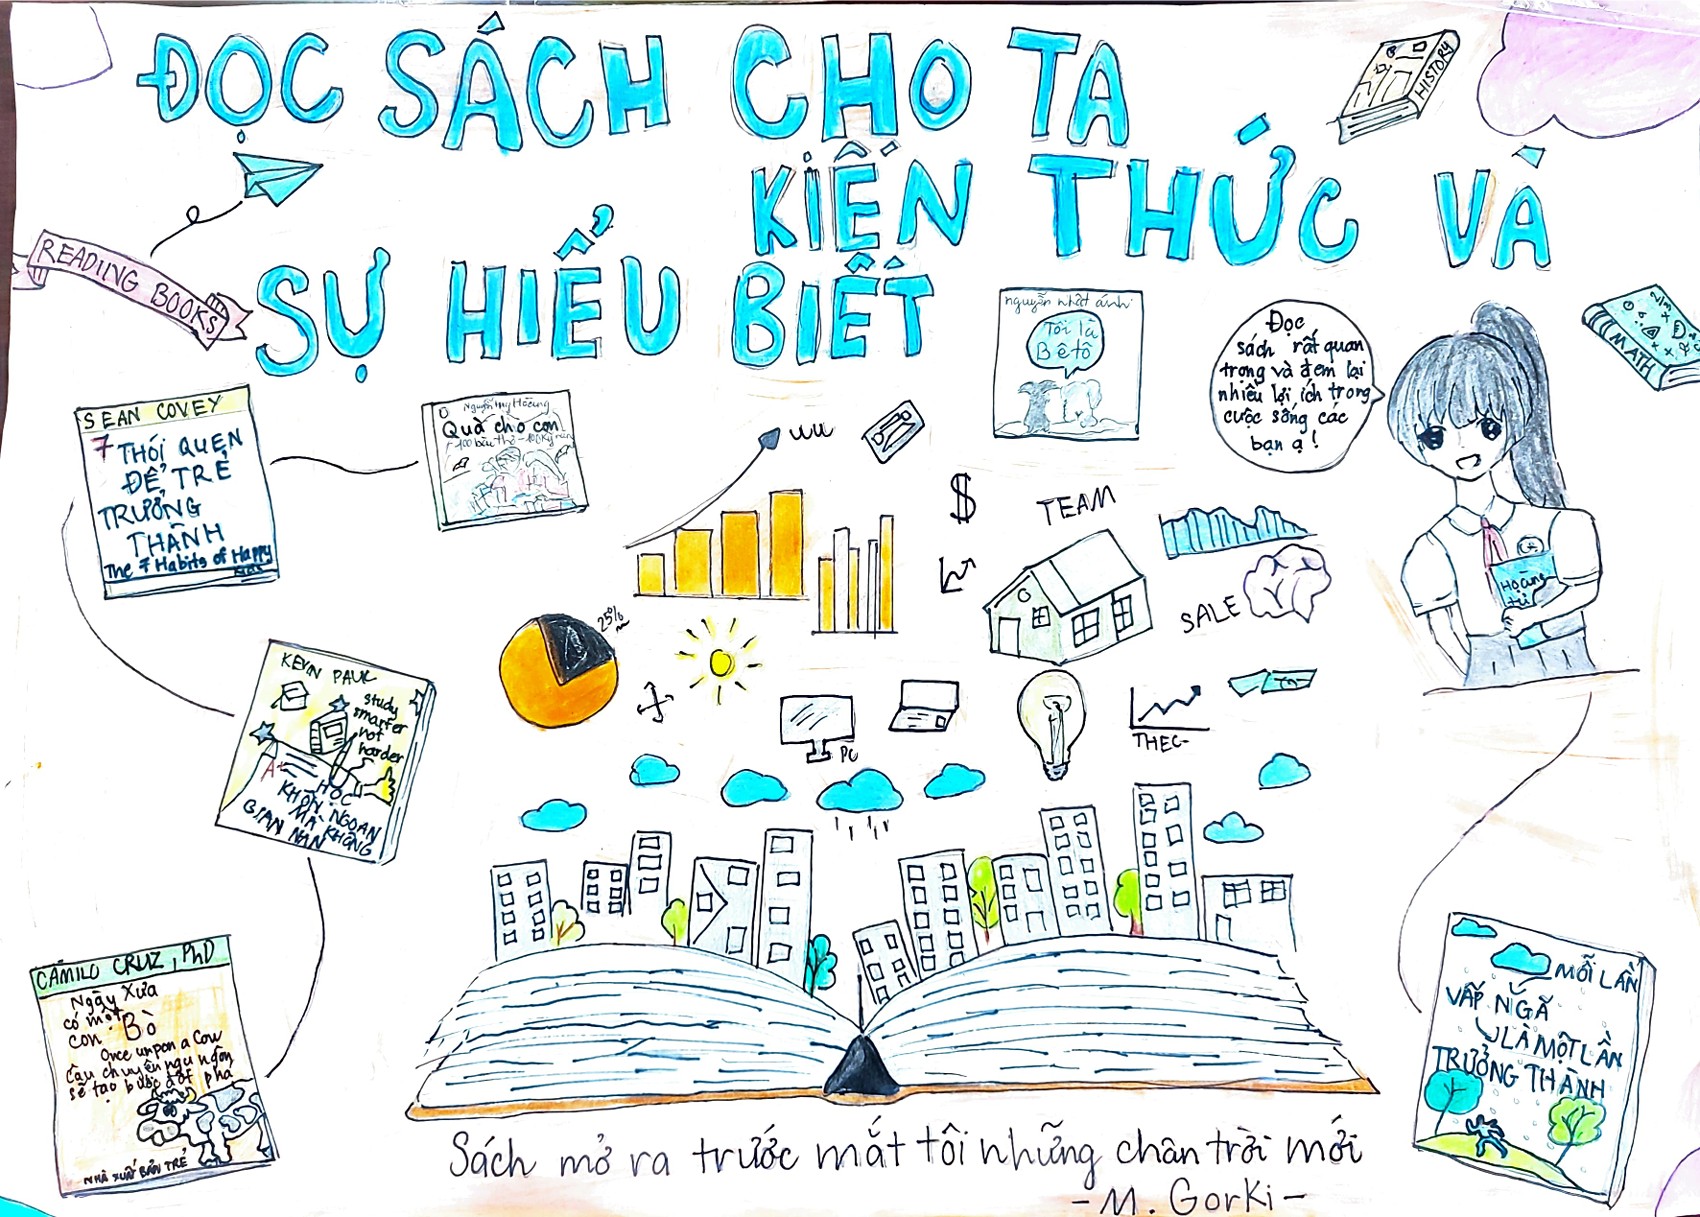 ĐỌC SÁCH CHO TA
KIẾN THỨC VÀ
SỰ HIỂU BIẾT
HISTORY
READIING BOOKS
MATH
nguyễn nhật ánh
Tôi là
Bêtô
Đọc
sách rất quan
trọng và đem lại
nhiều lợi ích trong
cuộc sống các
bạn ạ!
SEAN COVEY
7 THÓI QUEN
ĐỂ TRẺ
TRƯỞNG
THÀNH
The 7 Habits of Happy
Quà cho con
TEAM
$
SALE
Hoàng
tử
25%
PC
THEC-
KEVIN PAUL
study
smarter
not
harder
A+
HỌC
KHÔN NGOAN
MÀ KHÔNG
GIAN NAN
CAMILO CRUZ, PhD
Ngày Xưa
có một
con Bò
Once unpon a Cow
câu chuyện ngụ ngôn
sẽ tạo bước đột phá
NHÀ XUẤT BẢN TRẺ
MỖI LẦN
VẤP NGÃ
LÀ MỘT LẦN
TRƯỞNG THÀNH
Sách mở ra trước mắt tôi những chân trời mới
- M. Gorki -